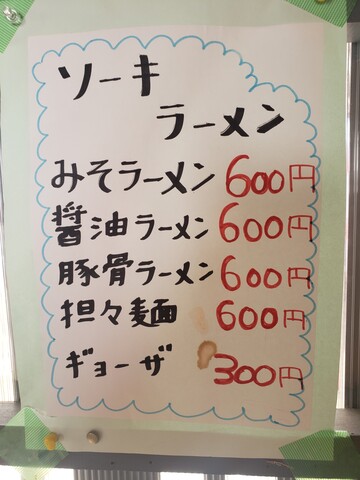 ソーキ
ラーメン
みそラーメン 600円
醤油ラーメン 600円
豚骨ラーメン 600円
担々麺 600円
ギョーザ 300円